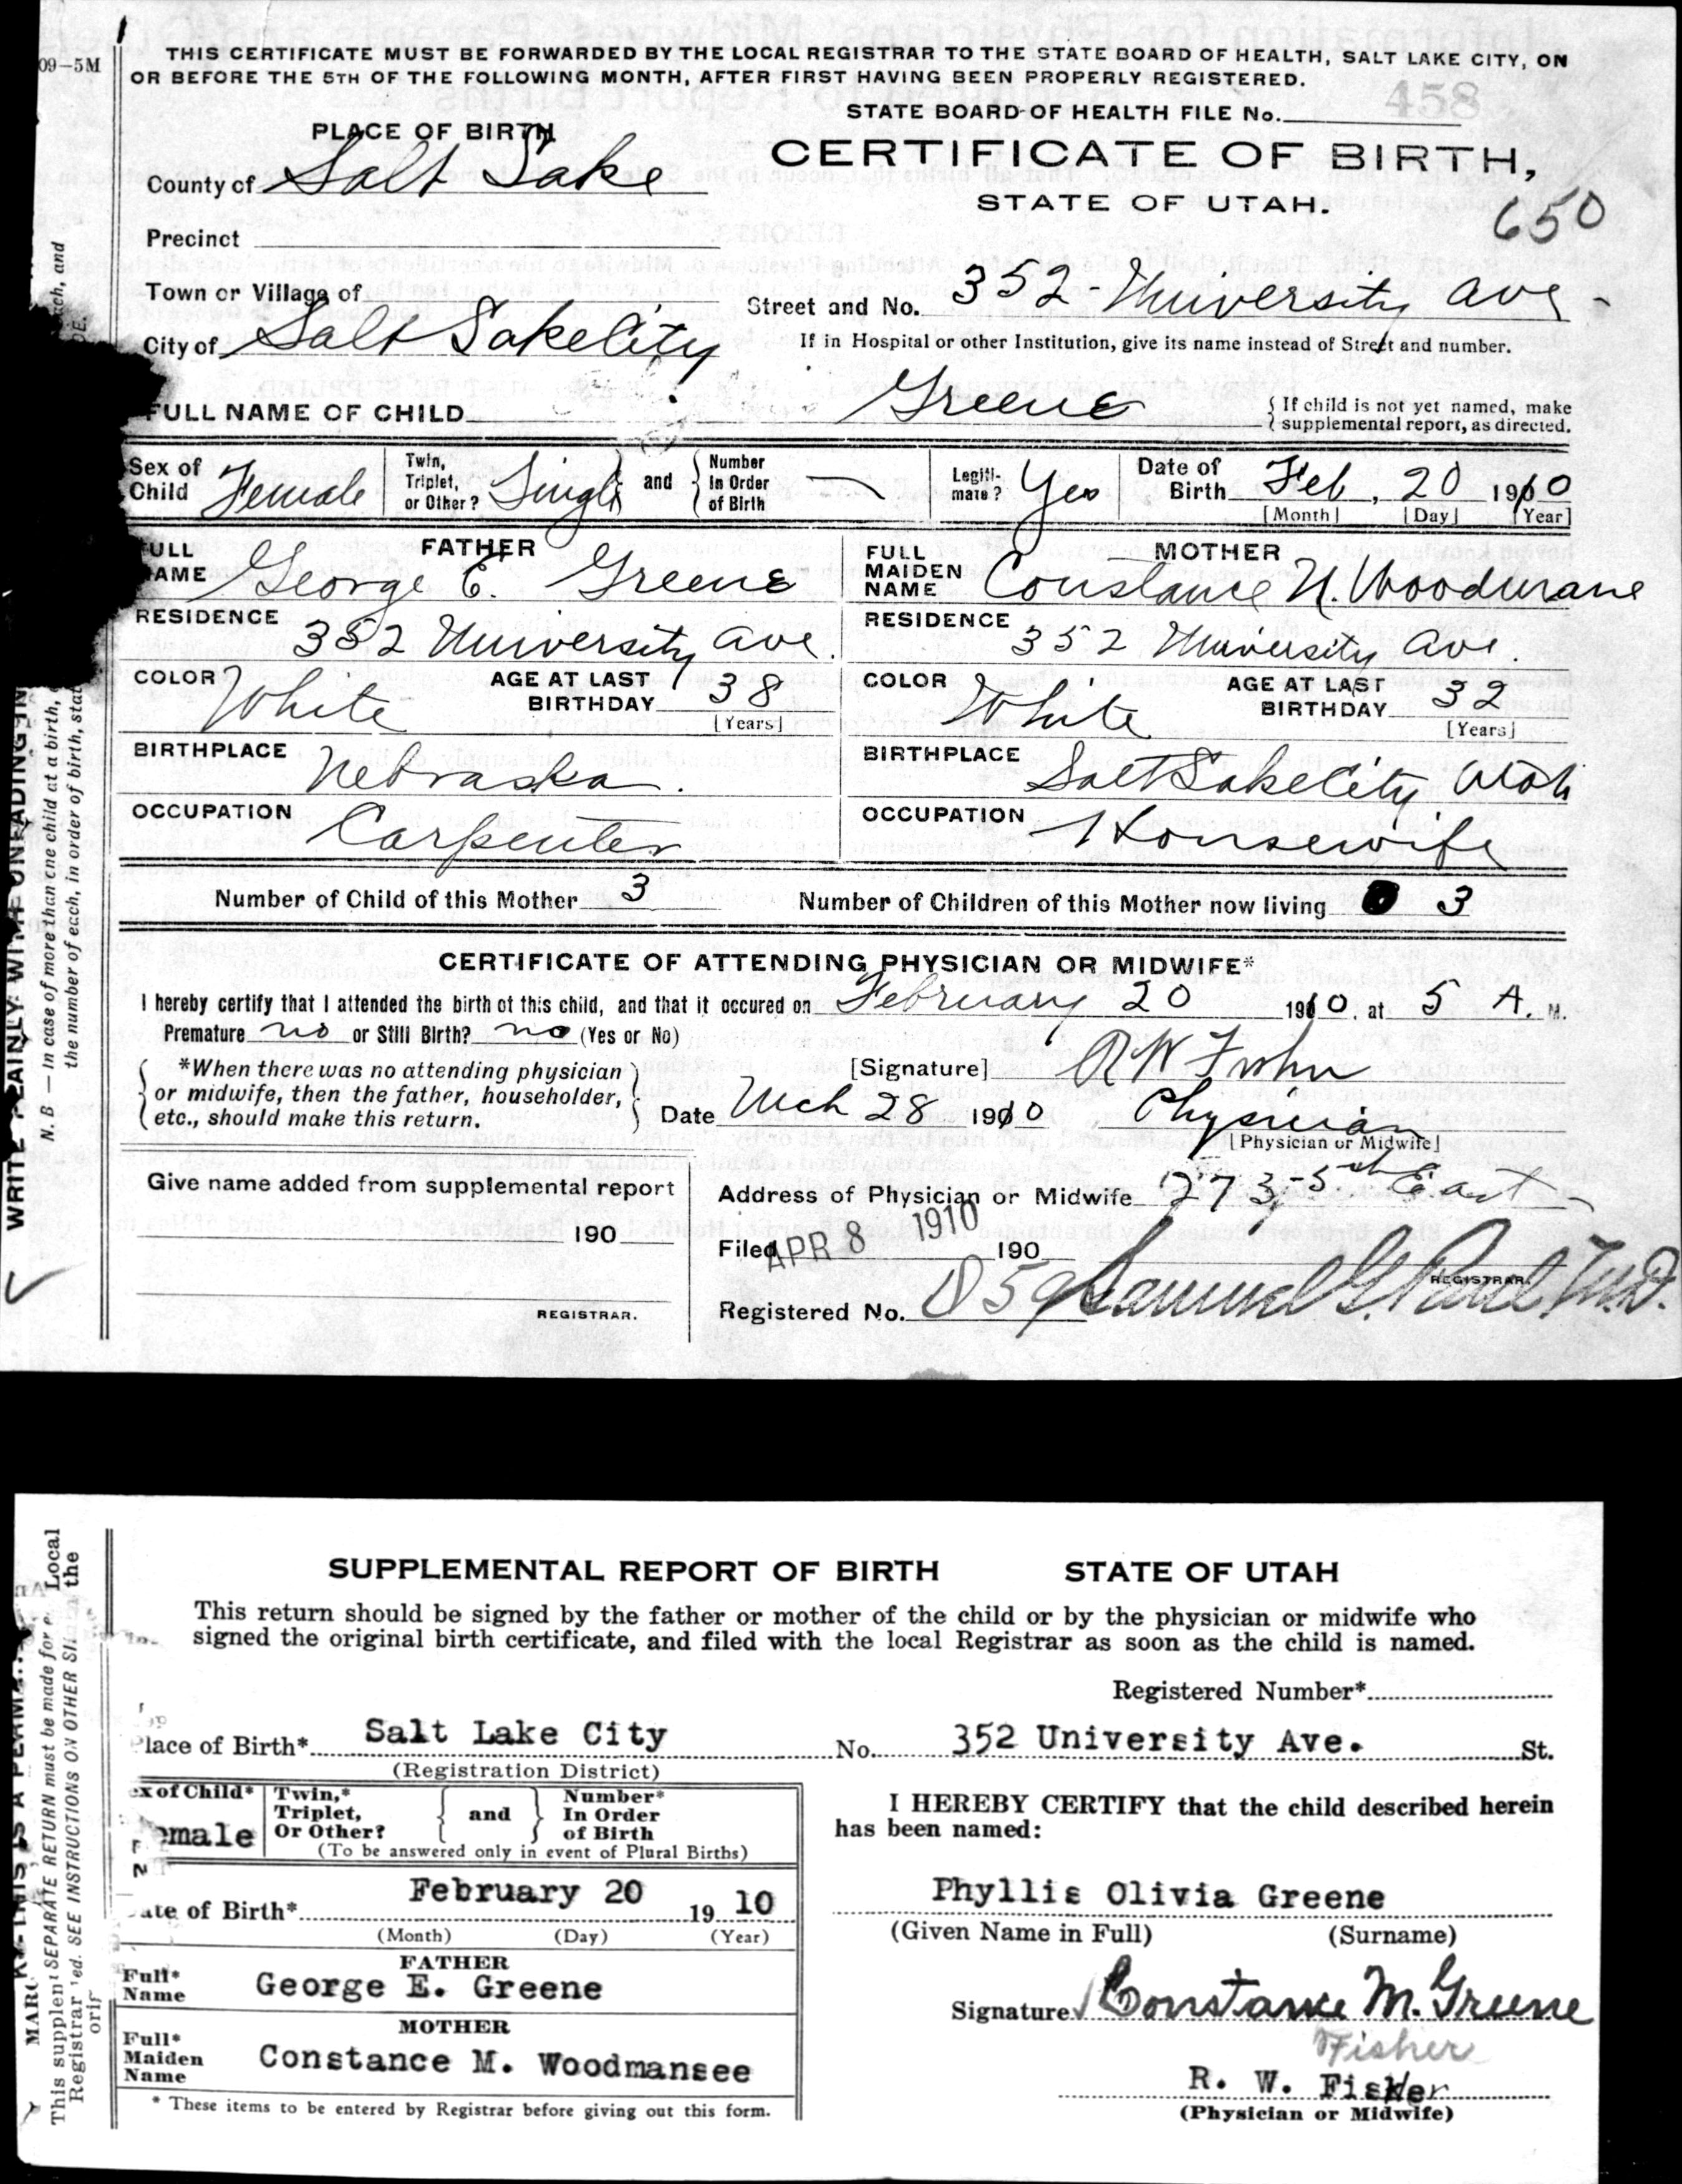 09–5M
THIS CERTIFICATE MUST BE FORWARDED BY THE LOCAL REGISTRAR TO THE STATE BOARD OF HEALTH, SALT LAKE CITY, ON
OR BEFORE THE 5TH OF THE FOLLOWING MONTH, AFTER FIRST HAVING BEEN PROPERLY REGISTERED.
STATE BOARD OF HEALTH FILE No. 458
PLACE OF BIRTH
CERTIFICATE OF BIRTH,
County of Salt Lake
STATE OF UTAH.
650
Precinct
Town or Village of
Street and No. 352 - University Ave -
City of Salt Lake City
If in Hospital or other Institution, give its name instead of Street and number.
FULL NAME OF CHILD Greene
{ If child is not yet named, make
supplemental report, as directed.
Sex of Child Female
Twin, Triplet, or Other? Single and Number In Order of Birth —
Legiti-mate? Yes
Date of Birth Feb, 20 1910
[Month] [Day] [Year]
FATHER
MOTHER
FULL NAME George E. Greene
FULL MAIDEN NAME Constance N. Woodmane
RESIDENCE 352 University Ave.
RESIDENCE 352 University Ave.
COLOR White AGE AT LAST BIRTHDAY 38 [Years]
COLOR White AGE AT LAST BIRTHDAY 32 [Years]
BIRTHPLACE Nebraska.
BIRTHPLACE Salt Lake City Utah
OCCUPATION Carpenter
OCCUPATION Housewife
Number of Child of this Mother 3 Number of Children of this Mother now living 3
CERTIFICATE OF ATTENDING PHYSICIAN OR MIDWIFE*
I hereby certify that I attended the birth of this child, and that it occured on February 20 1910, at 5 A. M.
Premature no or Still Birth? no (Yes or No)
*When there was no attending physician
or midwife, then the father, householder,
etc., should make this return.
[Signature] R W Fisher
Date Mch 28 1910 Physician
[Physician or Midwife]
Give name added from supplemental report
190
REGISTRAR.
Address of Physician or Midwife 273-5th East -
Filed APR 8 1910 190
Registered No. 859 Samuel G. Paul M.D.
REGISTRAR.
WRITE PLAINLY WITH UNFADING IN
N. B — In case of more than one child at a birth,
each, and
the number of each, in order of birth, stat
SUPPLEMENTAL REPORT OF BIRTH STATE OF UTAH
This return should be signed by the father or mother of the child or by the physician or midwife who
signed the original birth certificate, and filed with the local Registrar as soon as the child is named.
Registered Number*
Place of Birth* Salt Lake City No. 352 University Ave. St.
(Registration District)
ex of Child* emale
Twin,* Triplet, Or Other? and Number* In Order of Birth
(To be answered only in event of Plural Births)
ate of Birth* February 20 19 10
(Month) (Day) (Year)
FATHER
Full* Name George E. Greene
MOTHER
Full* Maiden Name Constance M. Woodmansee
* These items to be entered by Registrar before giving out this form.
I HEREBY CERTIFY that the child described herein
has been named:
Phyllis Olivia Greene
(Given Name in Full) (Surname)
Signature Constance M. Greene
Fisher
R. W. Fisher
(Physician or Midwife)
This supplement SEPARATE RETURN must be made for
Local
Registrar ed. SEE INSTRUCTIONS ON OTHER SI
the